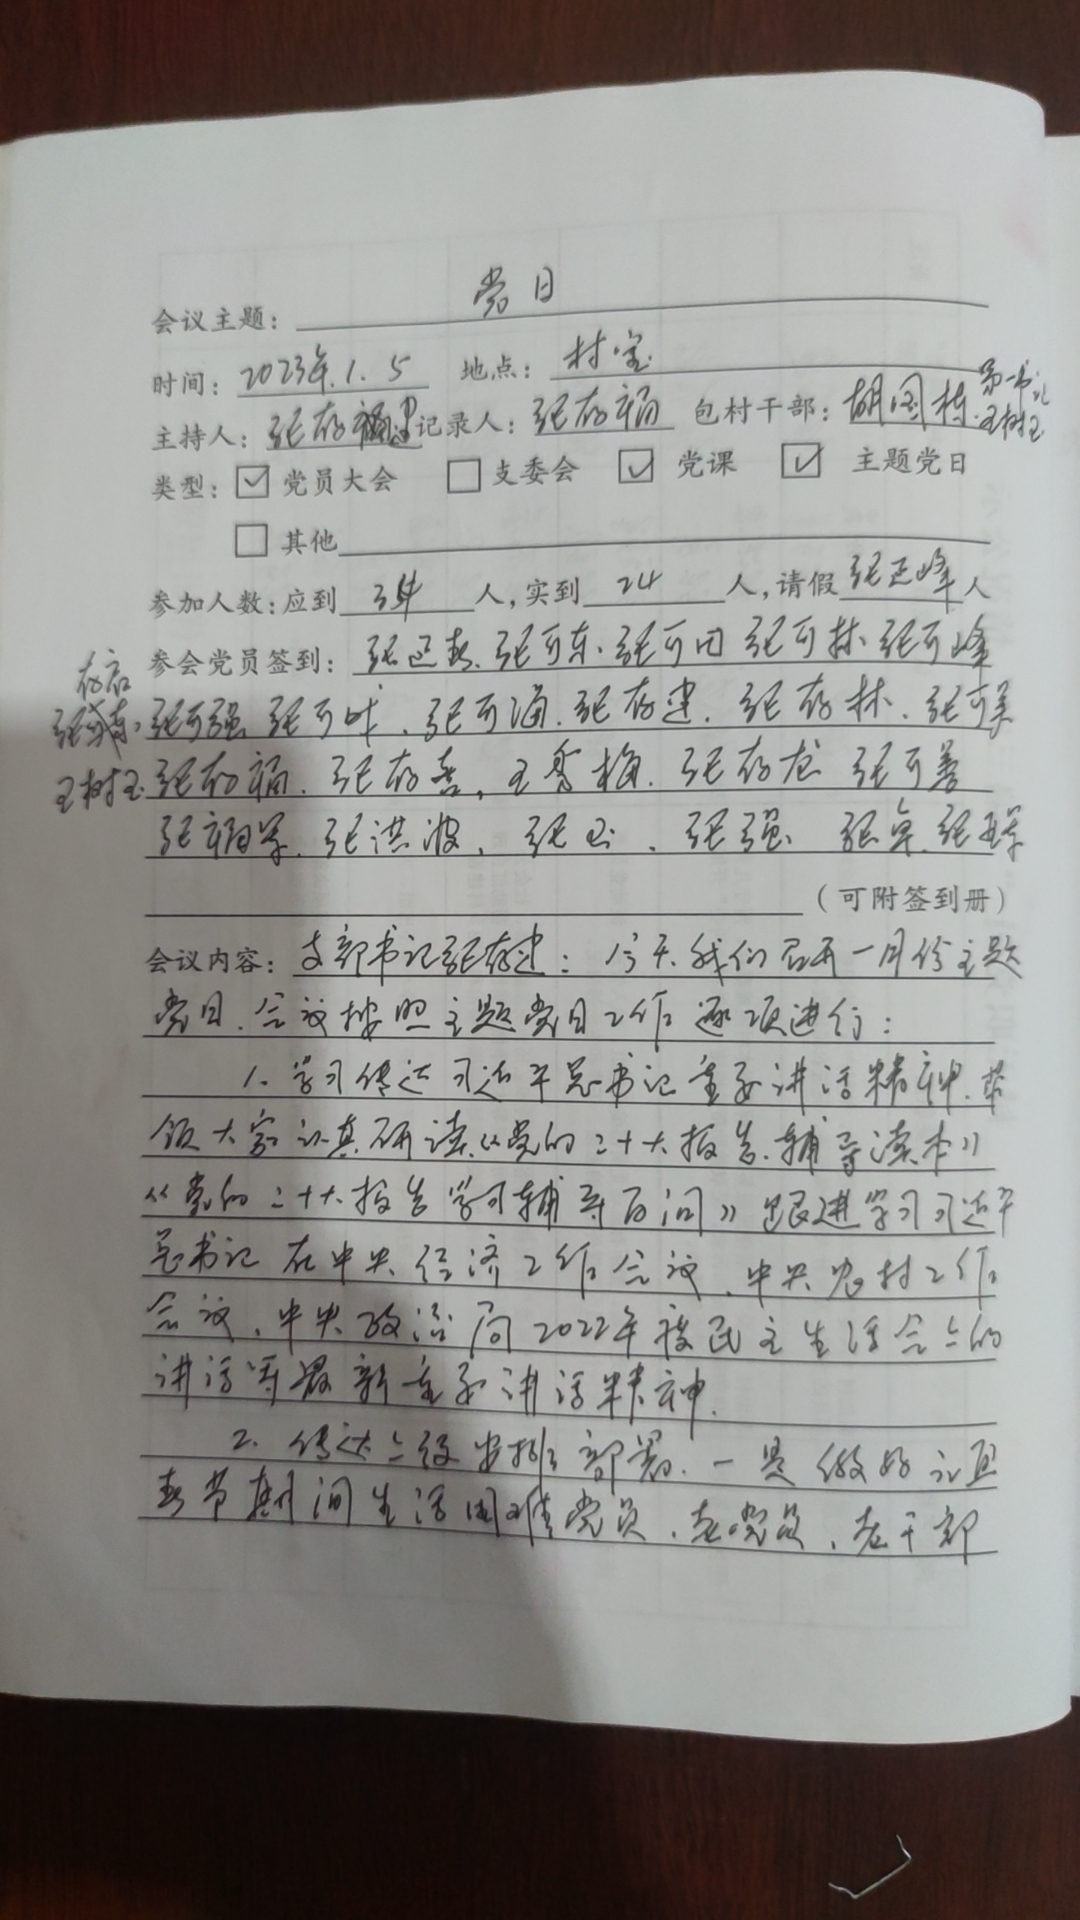 会议主题：党日
时间：2023年.1.5 地点：村室
第一书记
主持人：张存建 记录人：张存福 包村干部：胡国栋.王树玉
类型：☑党员大会 □支委会 ☑党课 ☑主题党日
□其他
参加人数：应到 人，实到 24 人，请假 张延峰 人
参会党员签到：张延春、张可东、张可田 张可林 张可峰
存启
张可强 张可 、张可海、张存建、张存林、张可美
王树玉 张存福、张存喜，王秀梅、张存龙 张可善
张福学、张洪波、张 、张强 张军、张 学
（可附签到册）
会议内容：支部书记张存建：今天我们召开一月份主题
党日、会议按照主题党日工作逐项进行：
1、学习传达习近平总书记重要讲话精神、带
领大家认真研读《党的二十大报告辅导读本》
《党的二十大报告学习辅导百问》跟进学习习近平
总书记在中央经济工作会议、中央农村工作
会议、中央政治局2022年度民主生活会上的
讲话等最新重要讲话精神.
2、传达上级安排部署、一是做好元旦
春节期间生活困难党员、老党员、老干部